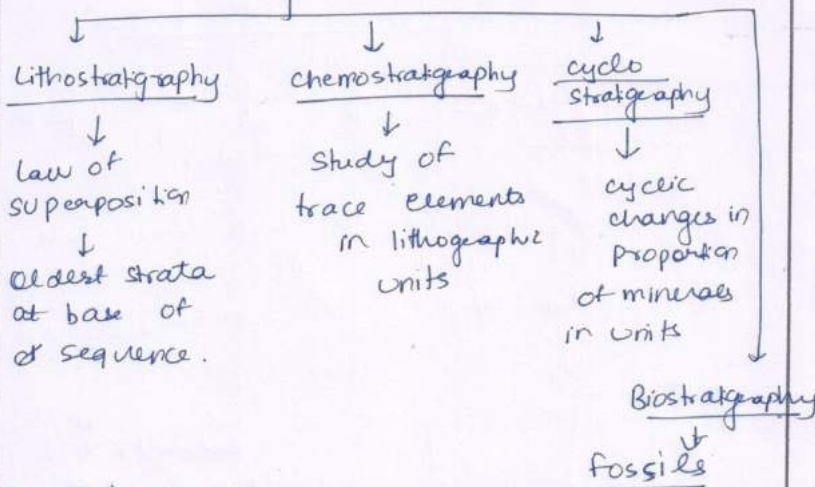 Lithostratgraphy
↓
law of
superposition
↓
oldest strata
at base of
of sequence.
chemostratgeaphy
↓
study of
trace elements
in lithographic
units
cyclo
stratgeaphy
↓
cyclic
changes in
proportion
of minerals
in units
Biostratgeaphy
↓
fossils